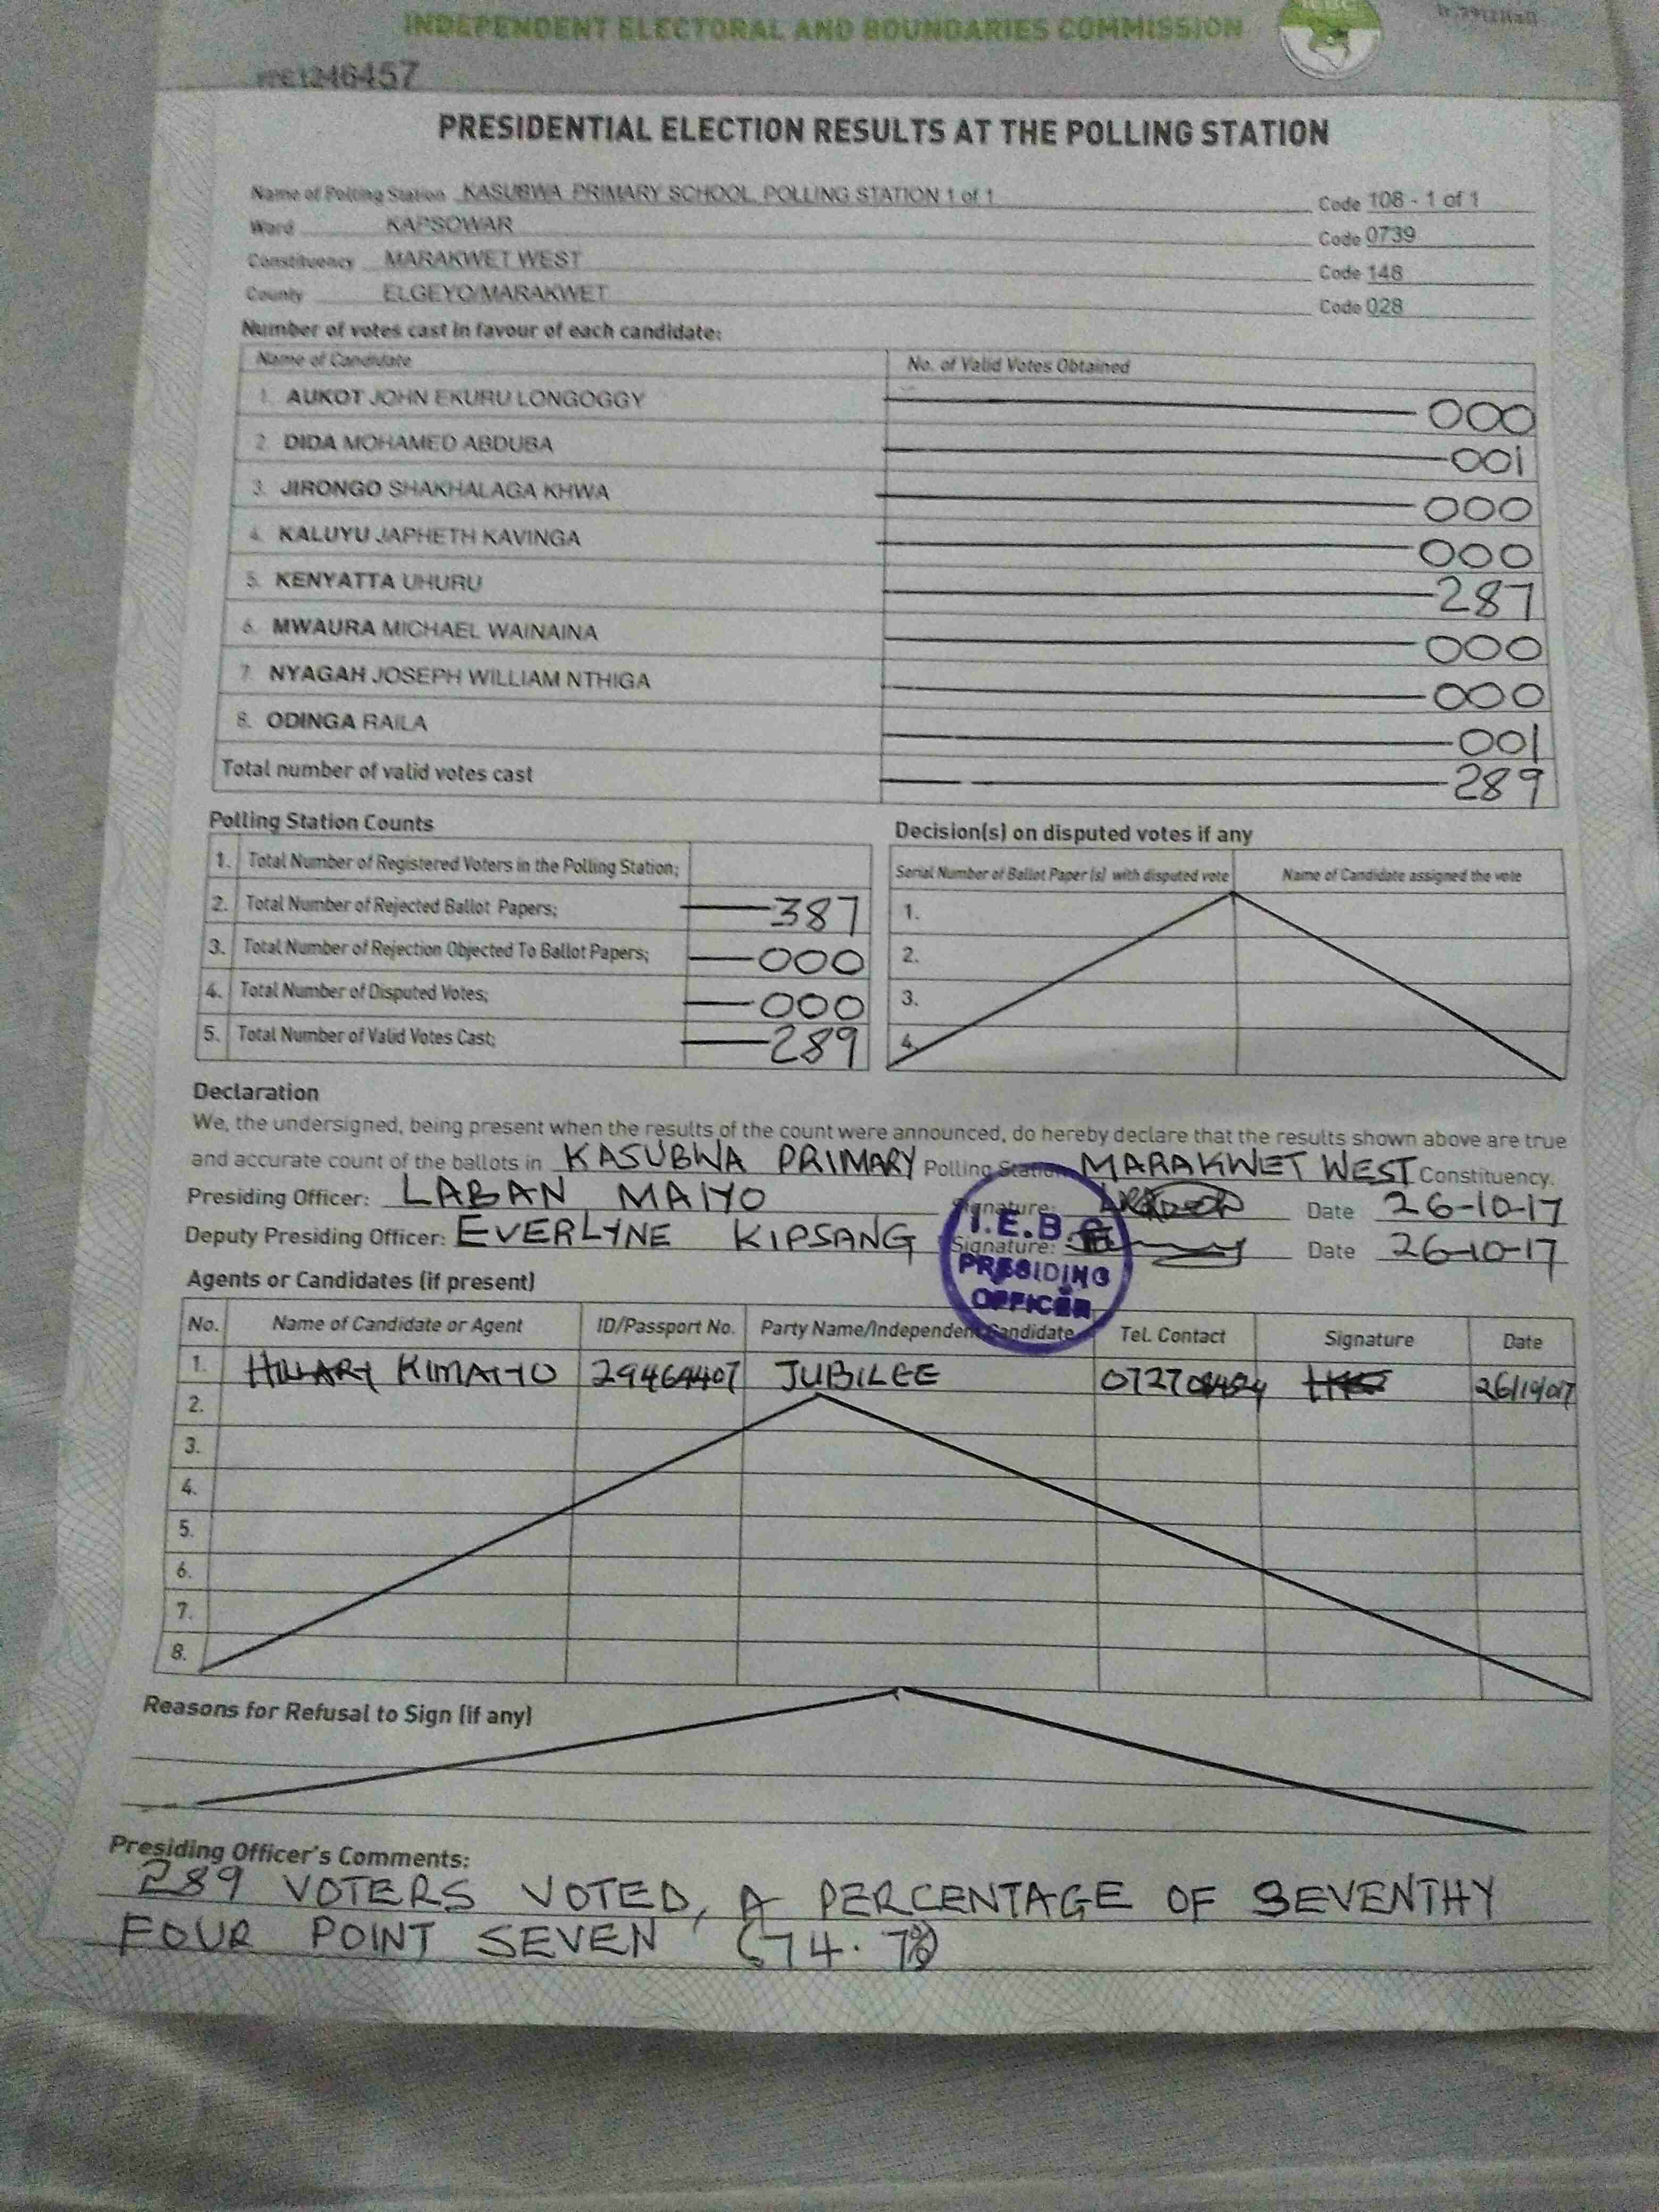 INDEPENDENT ELECTORAL AND BOUNDARIES COMMISSION
1246457
PRESIDENTIAL ELECTION RESULTS AT THE POLLING STATION
Name of Polling Station KASUBWA PRIMARY SCHOOL, POLLING STATION 1 of 1 Code 108 - 1 of 1
Ward KAPSOWAR Code 0739
Constituency MARAKWET WEST Code 148
County ELGEYO/MARAKWET Code 028
Number of votes cast in favour of each candidate:
Name of Candidate No. of Valid Votes Obtained
1. AUKOT JOHN EKURU LONGOGGY 000
2. DIDA MOHAMED ABDUBA 001
3. JIRONGO SHAKHALAGA KHWA 000
4. KALUYU JAPHETH KAVINGA 000
5. KENYATTA UHURU 287
6. MWAURA MICHAEL WAINAINA 000
7. NYAGAH JOSEPH WILLIAM NTHIGA 000
8. ODINGA RAILA 001
Total number of valid votes cast 289
Polling Station Counts
1. Total Number of Registered Voters in the Polling Station;
2. Total Number of Rejected Ballot Papers; 387
3. Total Number of Rejection Objected To Ballot Papers; 000
4. Total Number of Disputed Votes; 000
5. Total Number of Valid Votes Cast; 289
Decision(s) on disputed votes if any
Serial Number of Ballot Paper (s) with disputed vote Name of Candidate assigned the vote
1.
2.
3.
4.
Declaration
We, the undersigned, being present when the results of the count were announced, do hereby declare that the results shown above are true
and accurate count of the ballots in KASUBWA PRIMARY Polling Station MARAKWET WEST Constituency.
Presiding Officer: LABAN MAIYO Signature: Date 26-10-17
Deputy Presiding Officer: EVERLYNE KIPSANG Signature: Date 26-10-17
I.E.B.C
PRESIDING
OFFICER
Agents or Candidates (if present)
No. Name of Candidate or Agent ID/Passport No. Party Name/Independent Candidate Tel. Contact Signature Date
1. HILLARY KIMAIYO 29464407 JUBILEE
2.
3.
4.
5.
6.
7.
8.
Reasons for Refusal to Sign (if any)
Presiding Officer's Comments:
289 VOTERS VOTED, A PERCENTAGE OF SEVENTHY
FOUR POINT SEVEN (74.7%)